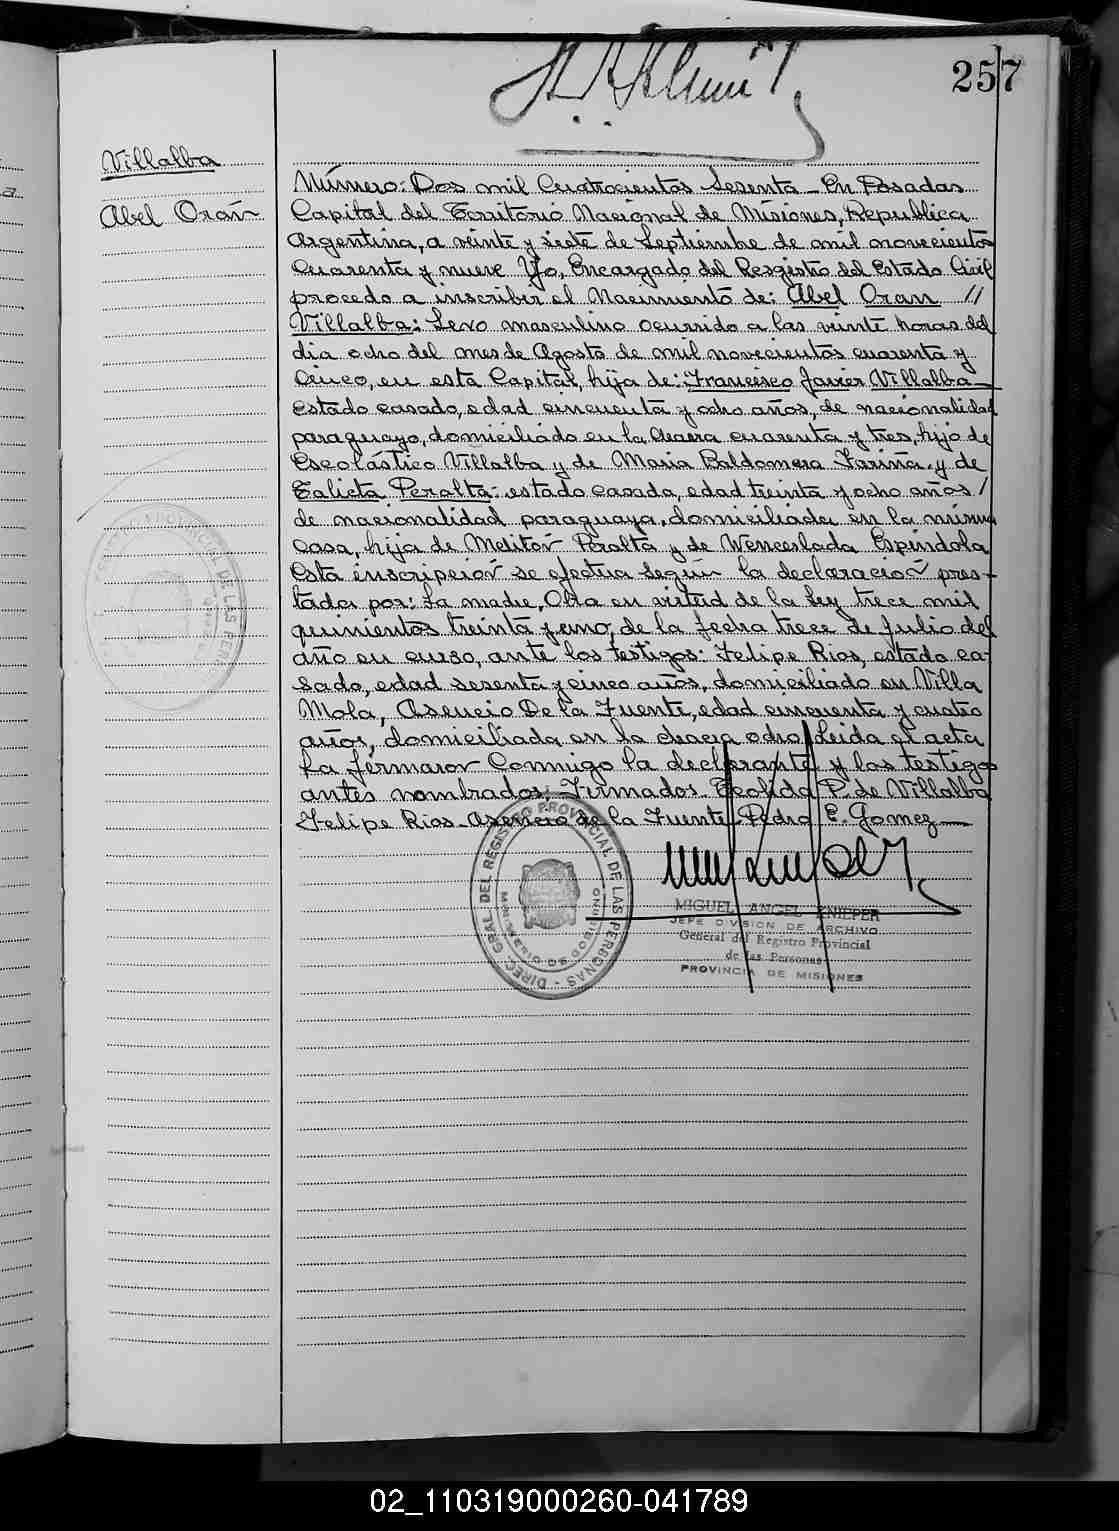 257
Villalba
Abel Orán
Número: Dos mil Cuatrocientos Sesenta - En Posadas
Capital del Territorio Nacional de Misiones, Republica
Argentina, a veinte y siete de Septiembre de mil novecientos
Cuarenta y nueve Yo, Encargado del Resgistro del Estado Civil
procedo a inscribir el Nacimiento de: Abel Oran //
Villalba: Sexo masculino ocurrido a las veinte horas del
dia ocho del mes de Agosto de mil novecientos cuarenta y
Cinco, en esta Capital, hijo de: Francisco Javier Villalba
estado casado, edad cincuenta y ocho años, de nacionalidad
paraguayo, domiciliado en la chacra cuarenta y tres, hijo de
Escolástico Villalba y de Maria Baldomera Fariña y de
Peralta: estado casada, edad treinta y ocho años /
de nacionalidad paraguaya, domiciliada en la misma
Casa, hija de Melitón Peralta y de Wenceslada Espíndola
Esta inscripción se efectua según la declaración pres-
tada por: La madre, en virtud de la ley trece mil
quinientos treinta y uno, de la fecha trece de Julio del
año en curso, ante los testigos: Felipe Rios, estado ca-
sado, edad sesenta y cinco años, domiciliado en Villa
Mola, Asencio De la Fuente, edad cincuenta y cuatro
años, domiciliada en la chacra ocho Leida el acta
La firmaron Conmigo la declarante y los testigos
antes nombrados: Firmados P. de Villalba
Felipe Rios - Asencio de la Fuente - Pedro E. Gomez
DIREC. GRAL. DEL REGISTRO PROVINCIAL DE LAS PERSONAS
MIGUEL ANGEL KNIEPER
JEFE DIVISION DE ARCHIVO
General del Registro Provincial
de las Personas
PROVINCIA DE MISIONES
02_110319000260-041789